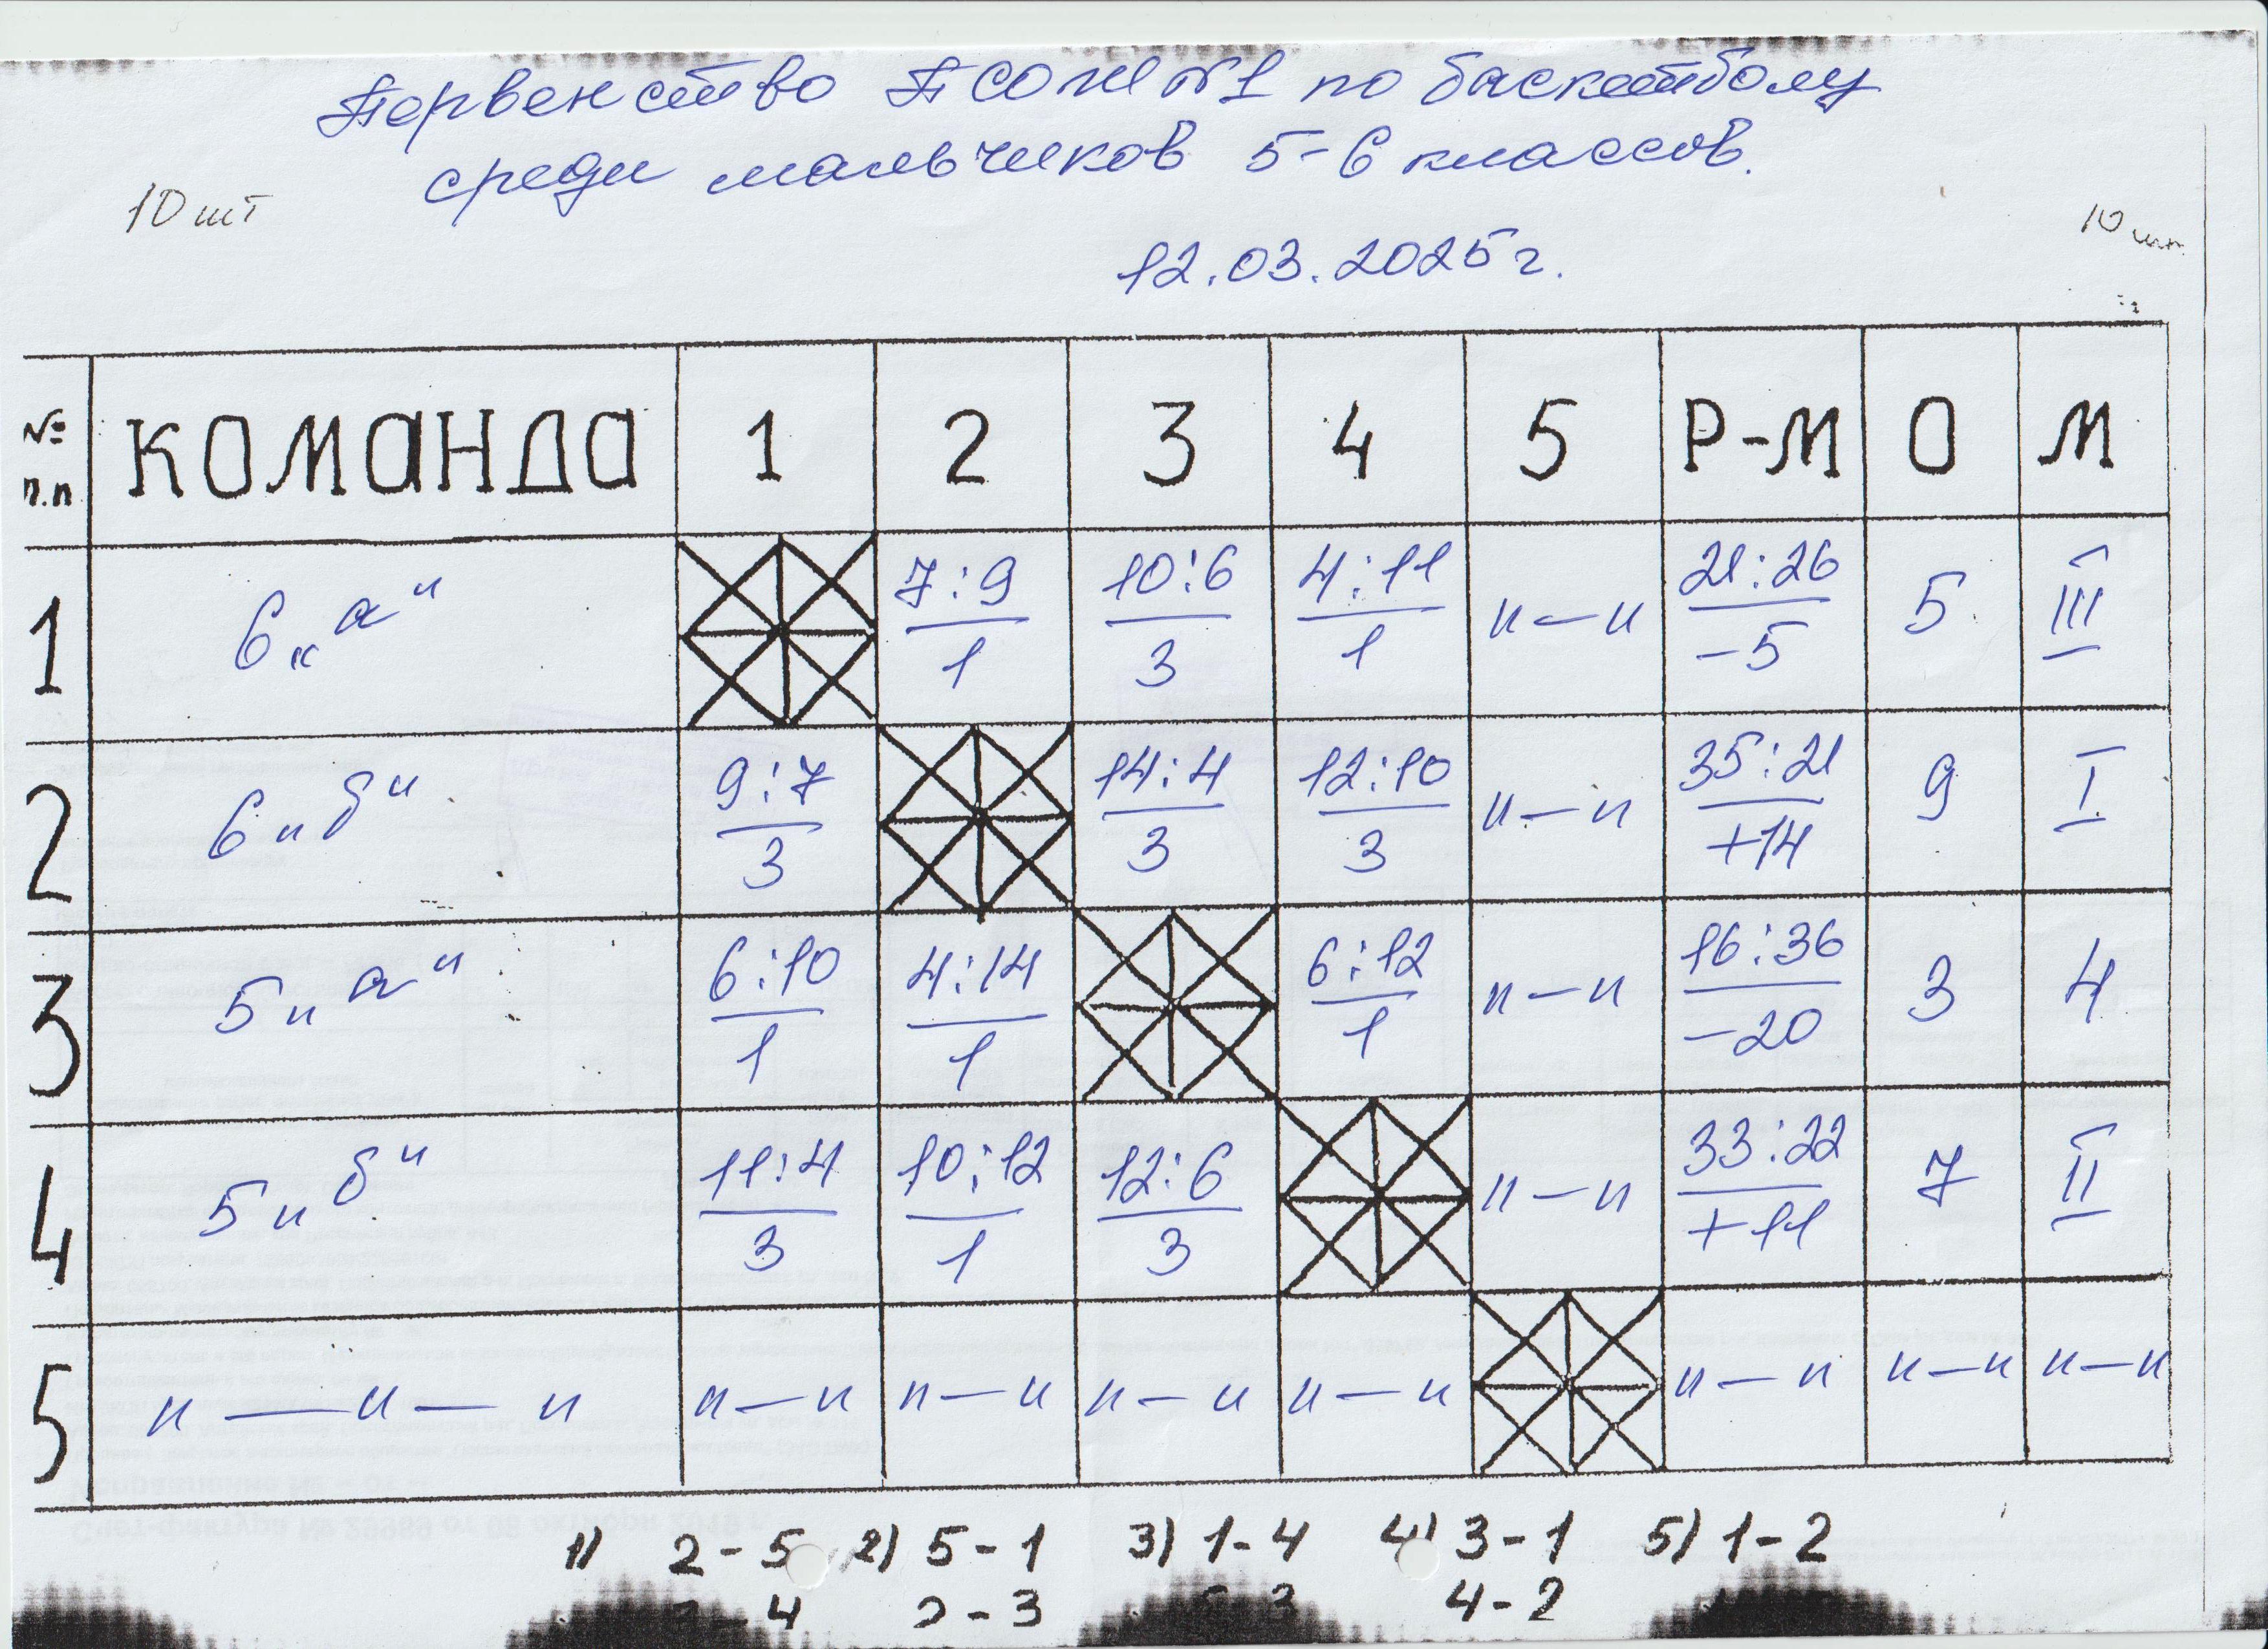 Первенство ПСОШ №1 по баскетболу
среди мальчиков 5-6 классов.
10 шт
10 шт
12.03.2025 г.
№ п.п КОМАНДА 1 2 3 4 5 Р-М О М
1 6 "а" 7:9 10:6 4:11 "—" 21:26 5 III
1 3 1 -5
2 6 "б" 9:7 14:4 12:10 "—" 35:21 9 I
3 3 3 +14
3 5 "а" 6:10 4:14 6:12 "—" 16:36 3 4
1 1 1 -20
4 5 "б" 11:4 10:12 12:6 "—" 33:22 7 II
3 1 3 +11
5 "—"—" "—" "—" "—" "—" "—" "—" "—"
1) 2-5 2) 5-1 3) 1-4 4) 3-1 5) 1-2
4 2-3 3 4-2